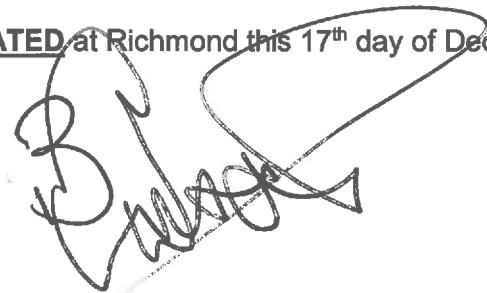 ATED at Richmond this 17th day of Dec